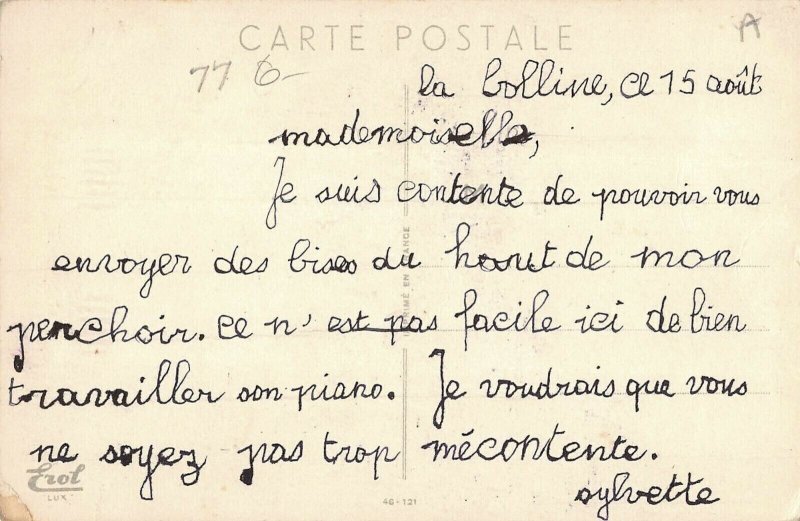 CARTE POSTALE
A
77 6-
la bolline, ce 15 août
mademoiselle,
Je suis contente de pouvoir vous
envoyer des bises du haut de mon
perchoir. ce n'est pas facile ici de bien
travailler son piano. Je voudrais que vous
ne soyez pas trop mécontente.
sylvette
Erol
LUX
46-121
IMPRIMÉ EN FRANCE